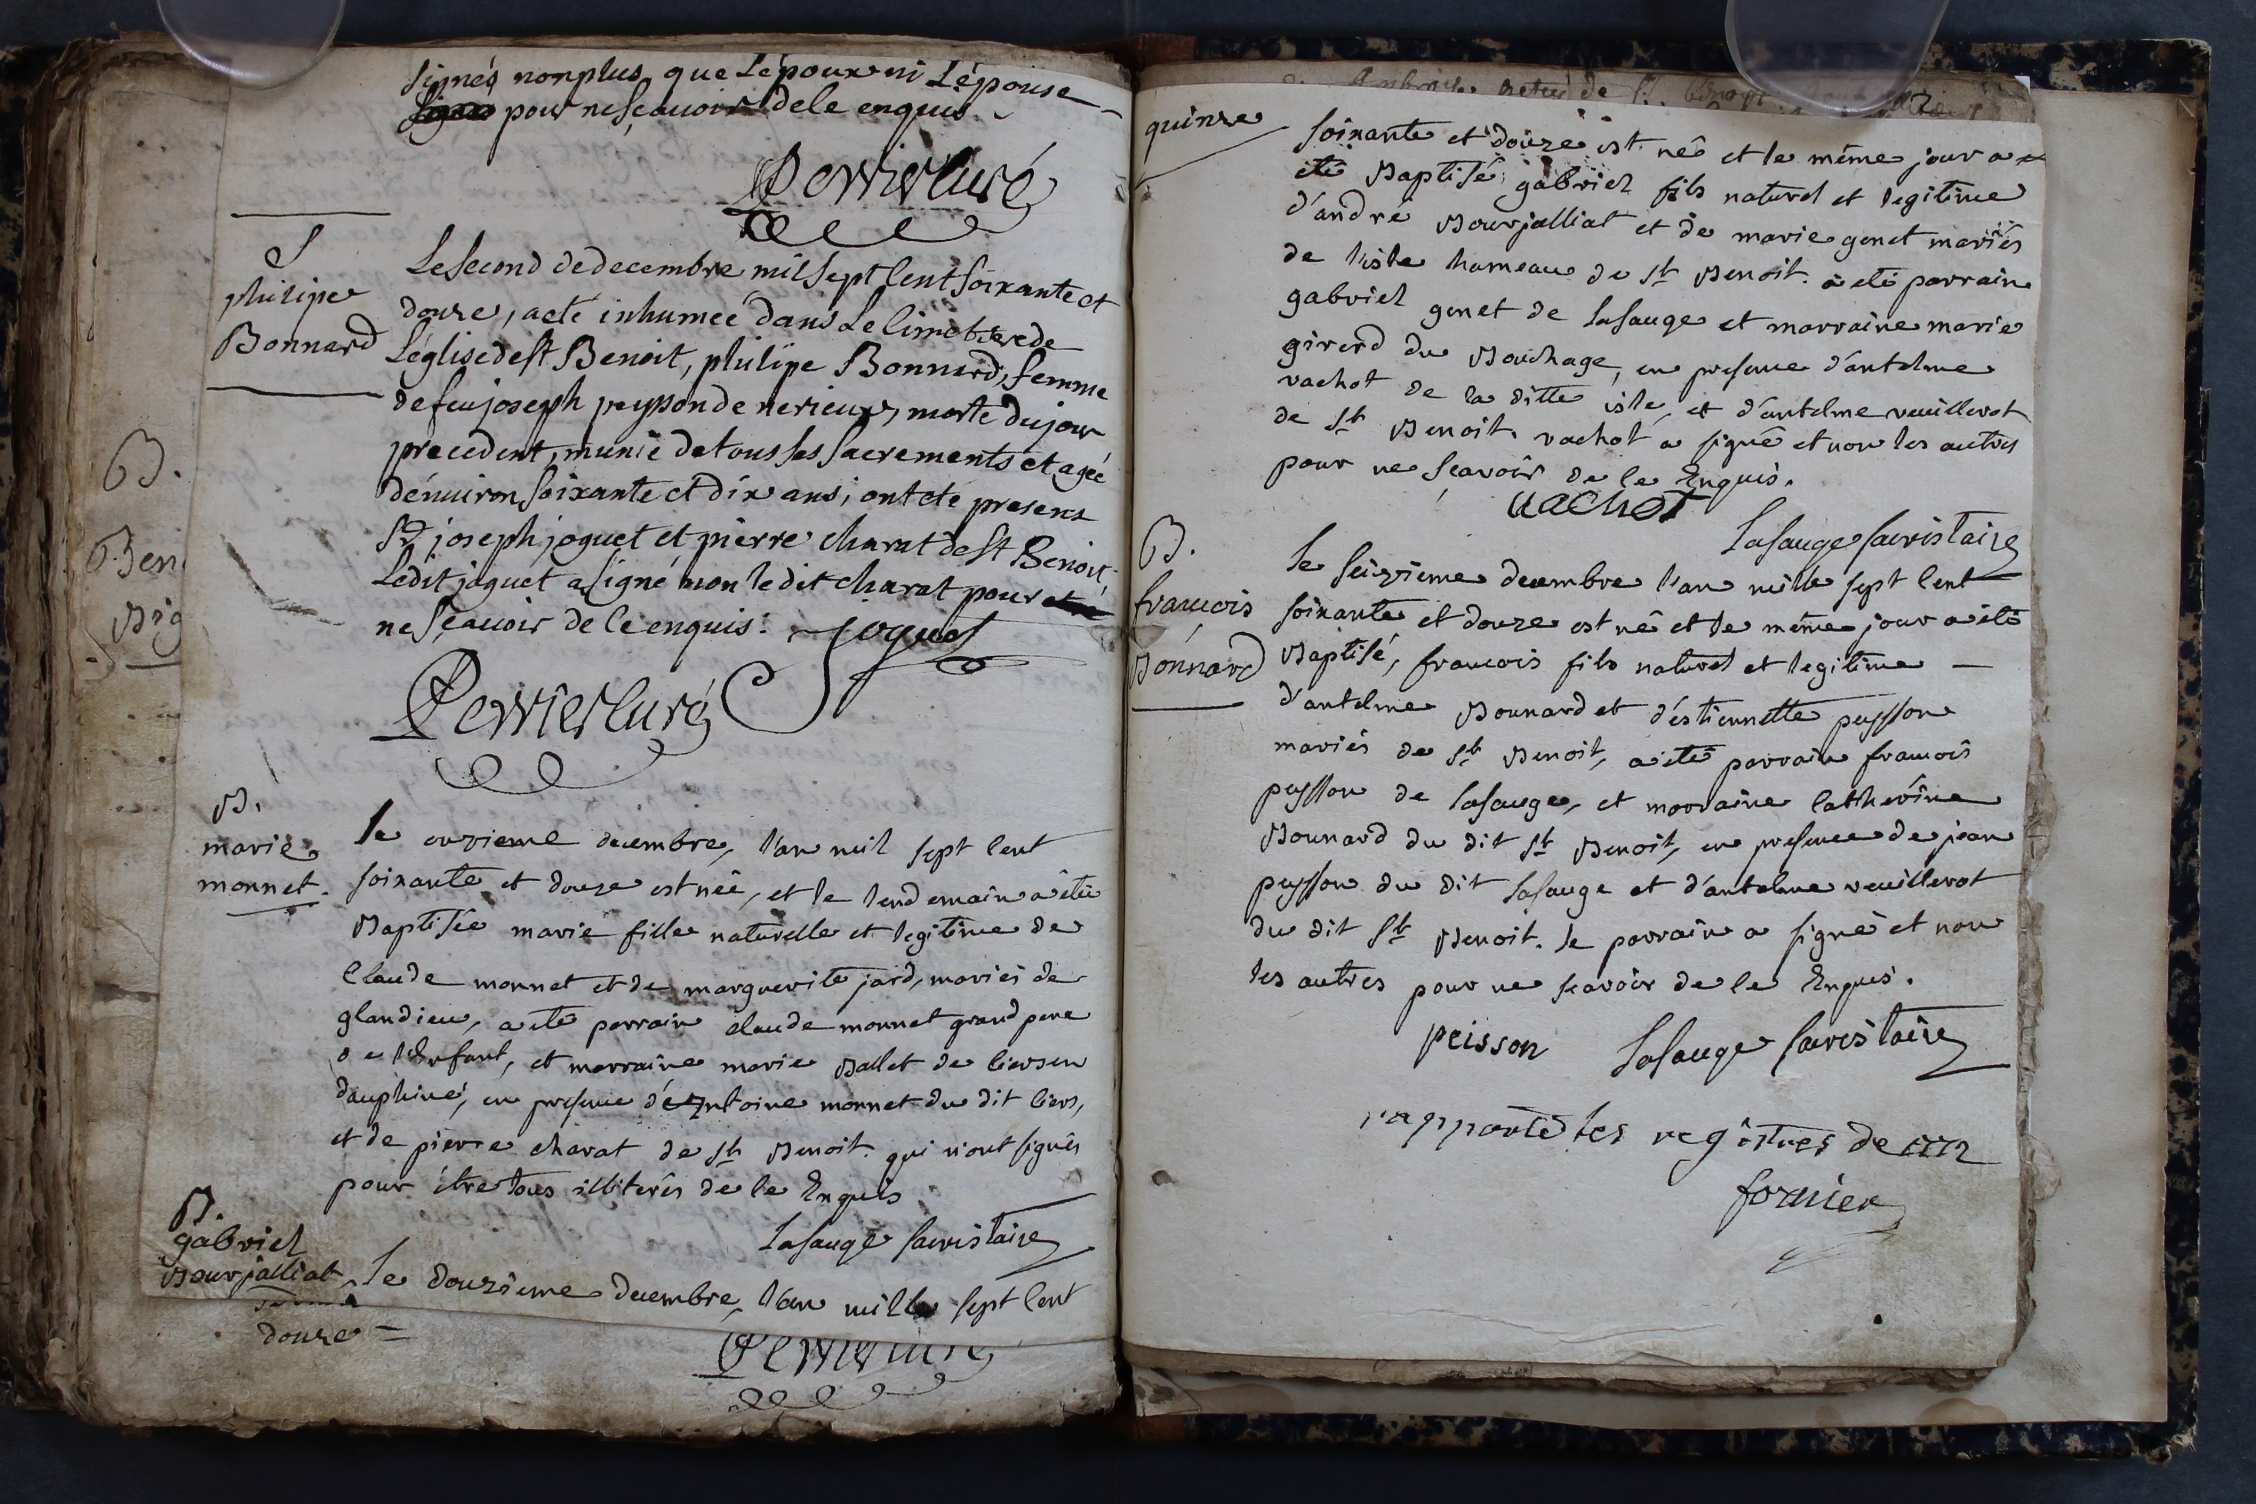 signés nonplus que Lépoux ni Lépouse
pour nesçauoir dele enquis
Perrier Curé
S
philipe
Bonnard
Le second de decembre mil sept Cent soixante et
douze, a eté inhumeé dans Le Cimetiere de
Léglise de st Benoit, philipe Bonnard, femme
de feu joseph peysson de nerieux, morte du jour
precedent, munie de tous les sacrements et ageé
dénuiron soixante et dix ans; ont eté presens
Sr joseph joguet et pierre charat de st Benoit.
Lédit joguet a signé non le dit charat pour
ne sçauoir de le enquis: joguet
Perrier Curé
B.
marie
monnet.
le onzieme decembre, l'an mil sept Cent
soixante et douze est neé, et le lendemain a été
Baptisée marie fille naturelle et legitime de
Claude monnet et de marguerite jard, mariés de
glandieu, a eté parrain claude monnet grand pere
de l'Enfant, et marraine marie Ballet de Ciers en
dauphiné, en presence d'Antoine monnet du dit Ciers,
et de pierre charat de st Benoit. qui n'ont signés
pour étre tous illiterés de ce Enquis
Lasauge sacristaire
B.
gabriel
Bourjalliat
le douzieme decembre, l'an mille sept Cent
douze =
Perrier Curé
B.
Ben
Big
quinze
soixante et douze est né et le même jour a
eté Baptisé gabriel fils naturel et legitime
d'andré Bourjalliat et de marie genet mariés
de l'isle hameau de st Benoit. a eté parrain
gabriel genet de lasauge et marraine marie
girerd du Bouchage, en presence d'antelme
vachot de la ditte isle, et d'antelme veuillerot
de st Benoit. vachot a signé et non les autres
pour ne scavoir de ce Enquis.
vachot
Lasauge sacristaire
B.
francois
Bonnard
le seizieme decembre l'an mille sept Cent
soixante et douze est né et le même jour a été
Baptisé, francois fils naturel et legitime —
d'antelme Bonnard et d'éstiennette peysson
mariés de st Benoit, a eté parrain francois
peysson de lasauge, et marraine Catherine
Bonnard du dit st Benoit, en presence de jean
peysson du dit lasauge et d'antelme veuillerot
du dit st Benoit. le parrain a signé et non
les autres pour ne scavoir de ce Enquis.
peisson Lasauge sacristaire
rapporté les registres de 1772
fornier